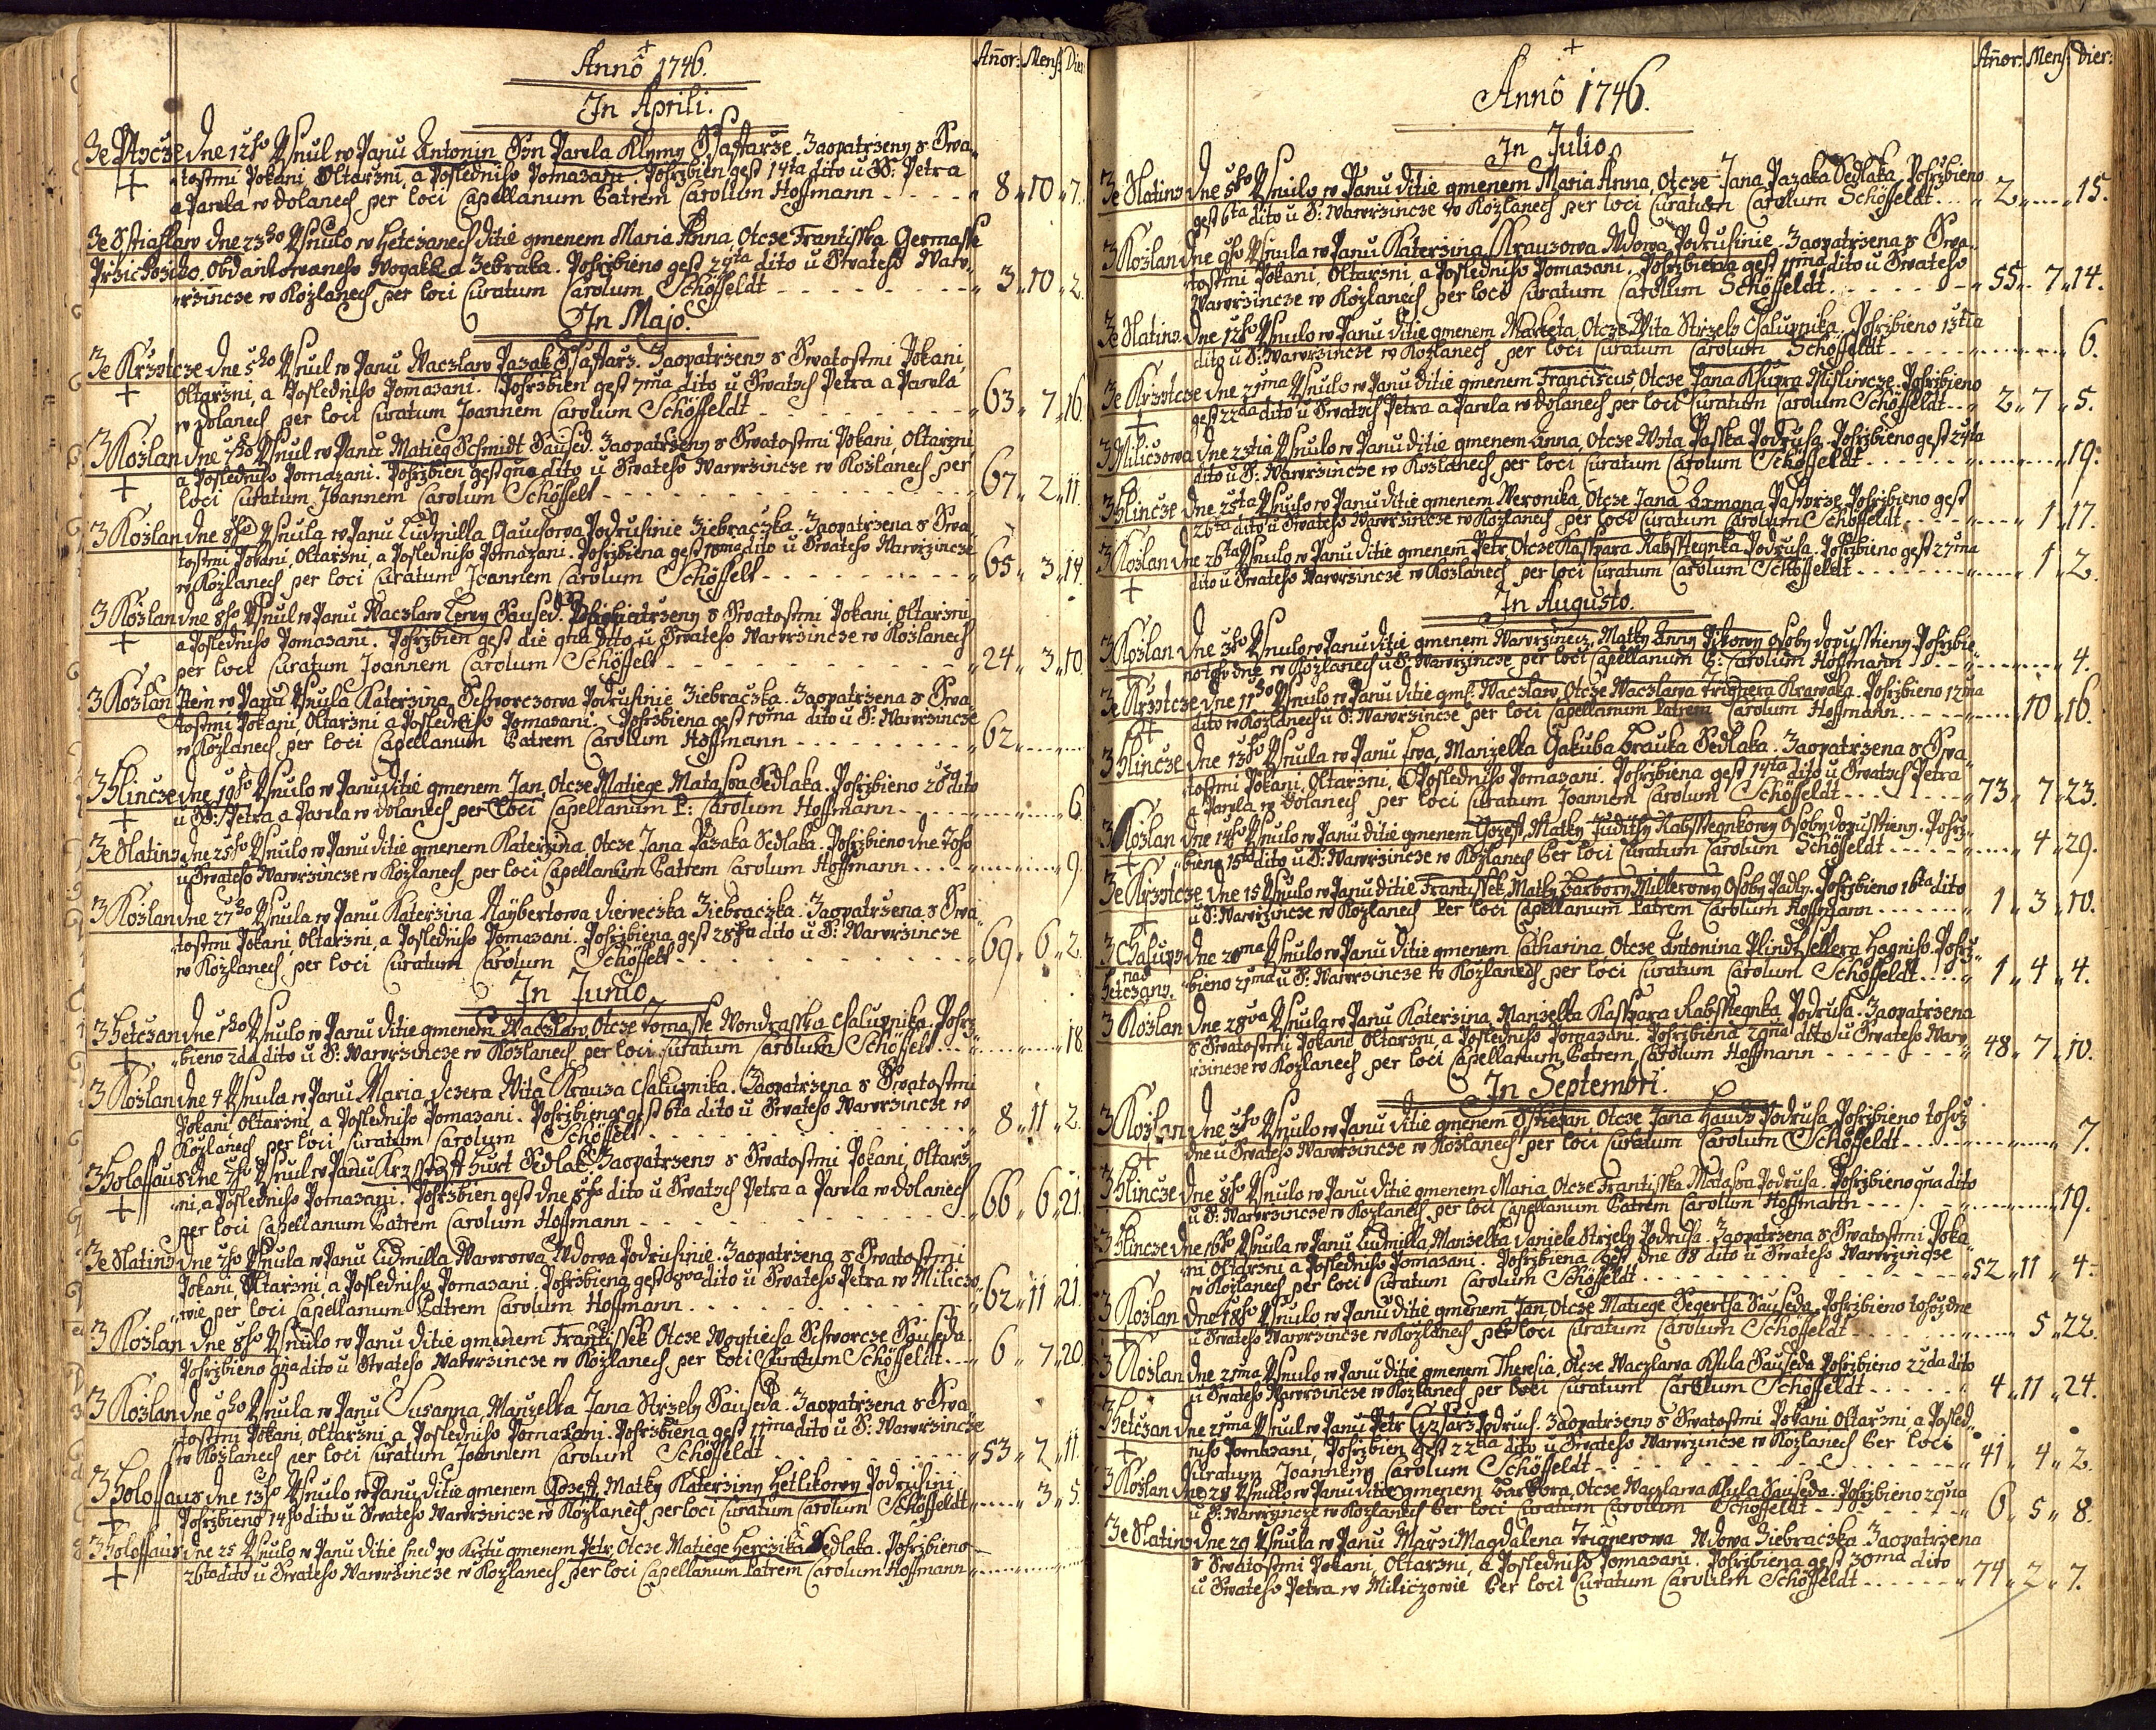 Annor: Mens: Dier:
Anno 1746.
In Aprili.
Ze Pticze dne 12ho Usnul w Panu Antonin Syn Pawla Klymy Ssaffarze. Zaopatrzeny s Swa-
tostmi Pokani, Oltarzni, a Posledniho Pomazani. Pohrzbien gest 14ta dito u SS: Petra
a Pawla w Dolanech per loci Capellanum Patrem Carolum Hoffmann - - - - 8 " 10 " 7.
dne 23ho Usnulo w Hetczanech Ditie gmenem Maria Anna, Otcze Frantisska
Przichoziho. Pohrzbieno gest dito u Swateho Waw-
rzincze w Kozlanech per loci Curatum Carolum Schöffeldt - - - - 3 " 10 " 2.
In Majo.
Ze Krzwtcze dne 5ho Usnul w Panu Waczlaw Pazak Ssaffarz. Zaopatrzeny s Swatostmi Pokani,
Oltarzni, a Posledniho Pomazani. Pohrzbien gest 7ma dito u Swatych Petra a Pawla
w Dolanech per loci Curatum Joannem Carolum Schöffeldt - - - - 63 " 7 " 16.
Z Kozlan dne 7ho Usnul w Panu Matieg Schmidt Saused. Zaopatrzeny s Swatostmi Pokani, Oltarzni,
a Posledniho Pomazani. Pohrzbien gest 9na dito u Swateho Wawrzincze w Kozlanech per
loci Curatum Joannem Carolum Schöffelt - - - - 67 " 2 " 11.
Z Kozlan dne 8ho Usnula w Panu Ludmilla Podruhinie Ziebraczka. Zaopatrzena s Swa-
tostmi Pokani, Oltarzni, a Posledniho Pomazani. Pohrzbiena gest 10ma dito u Swateho Wawrzincze
w Kozlanech per loci Curatum Joannem Carolum Schöffelt - - - - 65 " 3 " 14.
Z Kozlan dne 8ho Usnul w Panu Waczlaw Saused. s Swatostmi Pokani, Oltarzni,
a Posledniho Pomazani. Pohrzbien gest die 9na dito u Swateho Wawrzincze w Kozlanech
per loci Curatum Joannem Carolum Schöffelt - - - - 24 " 3 " 10.
Z Kozlan Item w Panu Usnula Katerzina Schworczowa Podruhinie Ziebraczka. Zaopatrzena s Swa-
tostmi Pokani, Oltarzni a Posledniho Pomazani. Pohrzbiena gest 10ma dito u S: Wawrzincze
w Kozlanech per loci Capellanum Patrem Carolum Hoffmann - - - - 62
Z Hlincze dne 19ho Usnulo w Panu Ditie gmenem Jan, Otcze Matiege Sedlaka. Pohrzbieno dito
u SS: Petra a Pawla w Dolanech per loci Capellanum P: Carolum Hoffmann - - - - 6.
Ze Slatiny dne 25ho Usnulo w Panu Ditie gmenem Katerzina Otcze Jana Pazaka Sedlaka. Pohrzbieno dne
u Swateho Wawrzincze w Kozlanech, per loci Capellanum Patrem Carolum Hoffmann - - - - 9.
Z Kozlan dne 27ho Usnula w Panu Katerzina Ziebraczka. Zaopatrzena s Swa-
tostmi Pokani, Oltarzni, a Posledniho Pomazani. Pohrzbiena gest dito u S: Wawrzincze
w Kozlanech per loci Curatum Carolum Schöffelt - - - - 69 " 6 " 2.
In Junio
Z Hetczan dne 1ho Usnulo w Panu Ditie gmenem Waczlaw, Otcze Tomasse Wondrasska Chalupnika. Pohrz-
bieno 2da dito u S: Wawrzincze w Kozlanech per loci Curatum Carolum Schöffelt - - - - 18.
Z Kozlan dne 4 Usnula w Panu Maria dczera Wita Krauza Chalupnika. Zaopatrzena s Swatostmi
Pokani, Oltarzni, a Posledniho Pomazani. Pohrzbiena gest 6ta dito u Swateho Wawrzincze w
Kozlanech per loci Curatum Carolum Schöffelt - - - - 8 " 11 " 2.
Z Holoffaus dne 7ho Usnul w Panu Krzisstoff Hurt Sedlak. Zaopatrzeny s Swatostmi Pokani, Oltarz-
ni, a Posledniho Pomazani. Pohrzbien gest dne 8ho dito u Swatych Petra a Pawla w Dolanech
per loci Capellanum Patrem Carolum Hoffmann - - - - 66 " 6 " 21.
Ze Slatiny dne 7ho Usnula w Panu Ludmilla Wawrowa Wdowa Podruhinie. Zaopatrzena s Swatostmi
Pokani, Oltarzni, a Posledniho Pomazani. Pohrzbiena gest 8wa dito u Swateho Petra w Miliczo-
wie per loci Capellanum Patrem Carolum Hoffmann - - - - 62 " 11 " 21.
Z Kozlan dne 8ho Usnulo w Panu Ditie gmenem Frantissek Otcze Wogtiecha Schworcze Sauseda.
Pohrzbieno 9na dito u Swateho Wawrzincze w Kozlanech per loci Curatum Schöffeldt - - 6 " 7 " 20.
Z Kozlan dne 9ho Usnula w Panu Susanna, Manzelka Jana Strzely Sauseda. Zaopatrzena s Swa-
tostmi Pokani, Oltarzni, a Posledniho Pomazani. Pohrzbiena gest 11ma dito u S: Wawrzincze
w Kozlanech per loci Curatum Joannem Carolum Schöffeldt - - - - 53 " 2 " 11.
Z Holoffaus dne 13ho Usnulo w Panu Ditie gmenem Gozeff, Matky Katerziny Hetlikowy Podruhini
Pohrzbieno 14ho dito u Swateho Wawrzincze w Kozlanech per loci Curatum Carolum Schöffeldt - - 3 " 5.
Z Holoffaus dne 25 Usnulo w Panu Ditie hned po Krztu gmenem Petr, Otcze Matiege Sedlaka. Pohrzbieno
26ta dito u Swateho Wawrzincze w Kozlanech per loci Capellanum Patrem Carolum Hoffmann
Annor: Mens: Dier:
Anno 1746.
In Julio
Ze Slatiny dne 5ho Usnulo w Panu Ditie gmenem Maria Anna, Otcze Jana Pazaka Sedlaka. Pohrzbieno
gest 6ta dito u S: Wawrzincze w Kozlanech per loci Curatum Carolum Schöffeldt - - 2 " " 15.
Z Kozlan dne 9ho Usnula w Panu Katerzina Krauzowa Wdowa, Podruhinie. Zaopatrzena s Swa-
tostmi Pokani, Oltarzni, a Posledniho Pomazani. Pohrzbiena gest 11ma dito u Swateho
Wawrzincze w Kozlanech per loci Curatum Carolum Schöffeldt - - - - 55 " 7 " 14.
Ze Slatiny dne 12ho Usnulo w Panu Ditie gmenem Marketa, Otcze Wita Strzely Chalupnika. Pohrzbieno 13tia
dito u S: Wawrzincze w Kozlanech per loci Curatum Carolum Schöffeldt - - - - 6.
Ze Krzwtcze dne 21ma Usnulo w Panu Ditie gmenem Franciscus Otcze Jana Mysliwcze. Pohrzbieno
gest 22da dito u Swatych Petra a Pawla w Dolanech per loci Curatum Carolum Schöffeldt - - 2 " 7 " 5.
Z Miliczowa dne 23tia Usnulo w Panu Ditie gmenem Anna, Otcze Wita Passka Podruha. Pohrzbieno gest 24ta
dito u S: Wawrzincze w Kozlanech per loci Curatum Carolum Schöffeldt - - - - 19.
Z Hlincze dne 25ta Usnulo w Panu Ditie gmenem Weronika, Otcze Jana Pastirze. Pohrzbieno gest
26ta dito u Swateho Wawrzincze w Kozlanech per loci Curatum Carolum Schöffeldt - - - - 1 " 17.
Z Kozlan dne 26ta Usnulo w Panu Ditie gmenem Petr, Otcze Kasspara Rabsstegnka Podruha. Pohrzbieno gest 27ma
dito u Swateho Wawrzincze w Kozlanech per loci Curatum Carolum Schöffeldt - - - - 1 " 2.
In Augusto.
Z Kozlan dne 3ho Usnulo w Panu Ditie gmenem Wawrzinecz, Matky Anny Osoby dopusstieny. Pohrzbie-
no w Kozlanech u S: Wawrzincze per loci Capellanum P: Carolum Hoffmann - - - - 4.
Ze Krzwtcze dne 11ho Usnulo w Panu Ditie gm: Waczlaw, Otcze Waczlawa Trignera Krawaka. Pohrzbieno 12ma
dito w Kozlanech u S: Wawrzincze per loci Capellanum Patrem Carolum Hoffmann - - - - 10 " 16.
Z Hlincze dne 13ho Usnula w Panu Ewa, Manzelka Gakuba Brauka Sedlaka. Zaopatrzena s Swa-
tostmi Pokani, Oltarzni, a Posledniho Pomazani. Pohrzbiena gest 14ta dito u Swatych Petra
a Pawla w Dolanech per loci Curatum Joannem Carolum Schöffeldt - - - - 73 " 7 " 23.
Z Kozlan dne 14ho Usnulo w Panu Ditie gmenem Gozeff, Matky Judithy Rabsstegnkowy Osoby dopusstieny. Pohrz-
bieno 15ta dito u S: Wawrzincze w Kozlanech Per loci Curatum Carolum Schöffeldt - - - - 4 " 29.
Ze Krzwtcze dne 15 Usnulo w Panu Ditie Frantissek, Matky Barbory Millerowy Osoby Padly. Pohrzbieno 16ta dito
u S: Wawrzincze w Kozlanech Per loci Capellanum Patrem Carolum Hoffmann - - - - 1 " 3 " 10.
Z Chalupy nad Hetczany. dne 20ma Usnulo w Panu Ditie gmenem Catharina, Otcze Antonina Hagniho. Pohrz-
bieno 21ma u S: Wawrzincze w Kozlanech per loci Curatum Carolum Schöffeldt - - - - 1 " 4 " 4.
Z Kozlan dne 28va Usnula w Panu Katerzina, Manzelka Kasspara Rabsstegnka Podruha. Zaopatrzena
s Swatostmi Pokani Oltarzni, a Posledniho Pomazani. Pohrzbiena 29na dito u Swateho Waw-
rzincze w Kozlanech per loci Capellanum Patrem Carolum Hoffmann - - - - 48 " 7 " 10.
In Septembri.
Z Kozlan dne 3ho Usnulo w Panu Ditie gmenem Sstiepan, Otcze Jana Podruha, Pohrzbieno tohoz
dne u Swateho Wawrzincze w Kozlanech per loci Curatum Carolum Schöffeldt - - - - 7.
Z Hlincze dne 8ho Usnulo w Panu Ditie gmenem Maria Otcze Frantisska Podruha. Pohrzbieno 9na dito
u S: Wawrzincze w Kozlanech per loci Capellanum Patrem Carolum Hoffmann - - - - 19.
Z Hlincze dne 16ho Usnula w Panu Ludmilla, Manzelka Daniele Strzely Podruha. Zaopatrzena s Swatostmi Poka-
ni Oltarzni a Posledniho Pomazani. Pohrzbiena gest dne 18 dito u Swateho Wawrzincze
w Kozlanech per loci Curatum Carolum Schöffeldt - - - - 52 " 11 " 4.
Z Kozlan dne 18ho Usnulo w Panu Ditie gmenem Jan, Otcze Matiege Segertha Sauseda. Pohrzbieno tohoz dne
u Swateho Wawrzincze w Kozlanech per loci Curatum Carolum Schöffeldt - - - - 5 " 22.
Z Kozlan dne 21ma Usnulo w Panu Ditie gmenem Theresia, Otcze Waczlawa Sauseda. Pohrzbieno 22da dito
u Swateho Wawrzincze w Kozlanech per loci Curatum Carolum Schöffeldt - - - - 4 " 11 " 24.
Z Hetczan dne 21ma Usnul w Panu Petr Cyzarz Podruh. Zaopatrzeny s Swatostmi Pokani Oltarzni a Posled-
niho Pomazani, Pohrzbien gest 22da dito u Swateho Wawrzincze w Kozlanech Per loci
Curatum Joannem Carolum Schöffeldt - - - - 41 " 4 " 2.
Z Kozlan dne 28 Usnulo w Panu Ditie gmenem Barbora, Otcze Waczlawa Sauseda. Pohrzbieno 29na
u S: Wawrzyncze w Kozlanech Per loci Curatum Carolum Schöffeldt - - - - 6 " 5 " 8.
Ze Slatiny dne 29 Usnula w Panu Magdalena Trignerowa Wdowa Ziebraczka. Zaopatrzena
s Swatostmi Pokani, Oltarzni, a Posledniho Pomazani. Pohrzbiena gest 30ma dito
u Swateho Petra w Miliczowie Per loci Curatum Carolum Schöffeldt - - - - 74 " 2 " 7.